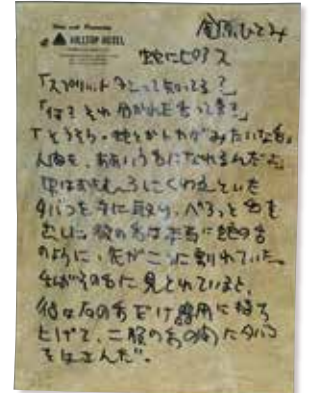 金原ひとみ
HILLTOP HOTEL
蛇にピアス
「スプリットタンって知ってる?」
「何?それ 分かれた舌って事?」
「そうそう。蛇とかトカゲみたいな舌。
人間も、ああいう舌になれるんだよ」
男はおもむろにくわえていた
タバコを手に取り、べろっと舌を
出した。彼の舌は本当に蛇の舌
のように、先が二つに割れていた。
私がその舌に見とれていると、
彼は右の舌だけ器用に持ち
上げて、二股の舌の間にタバコ
をはさんだ。